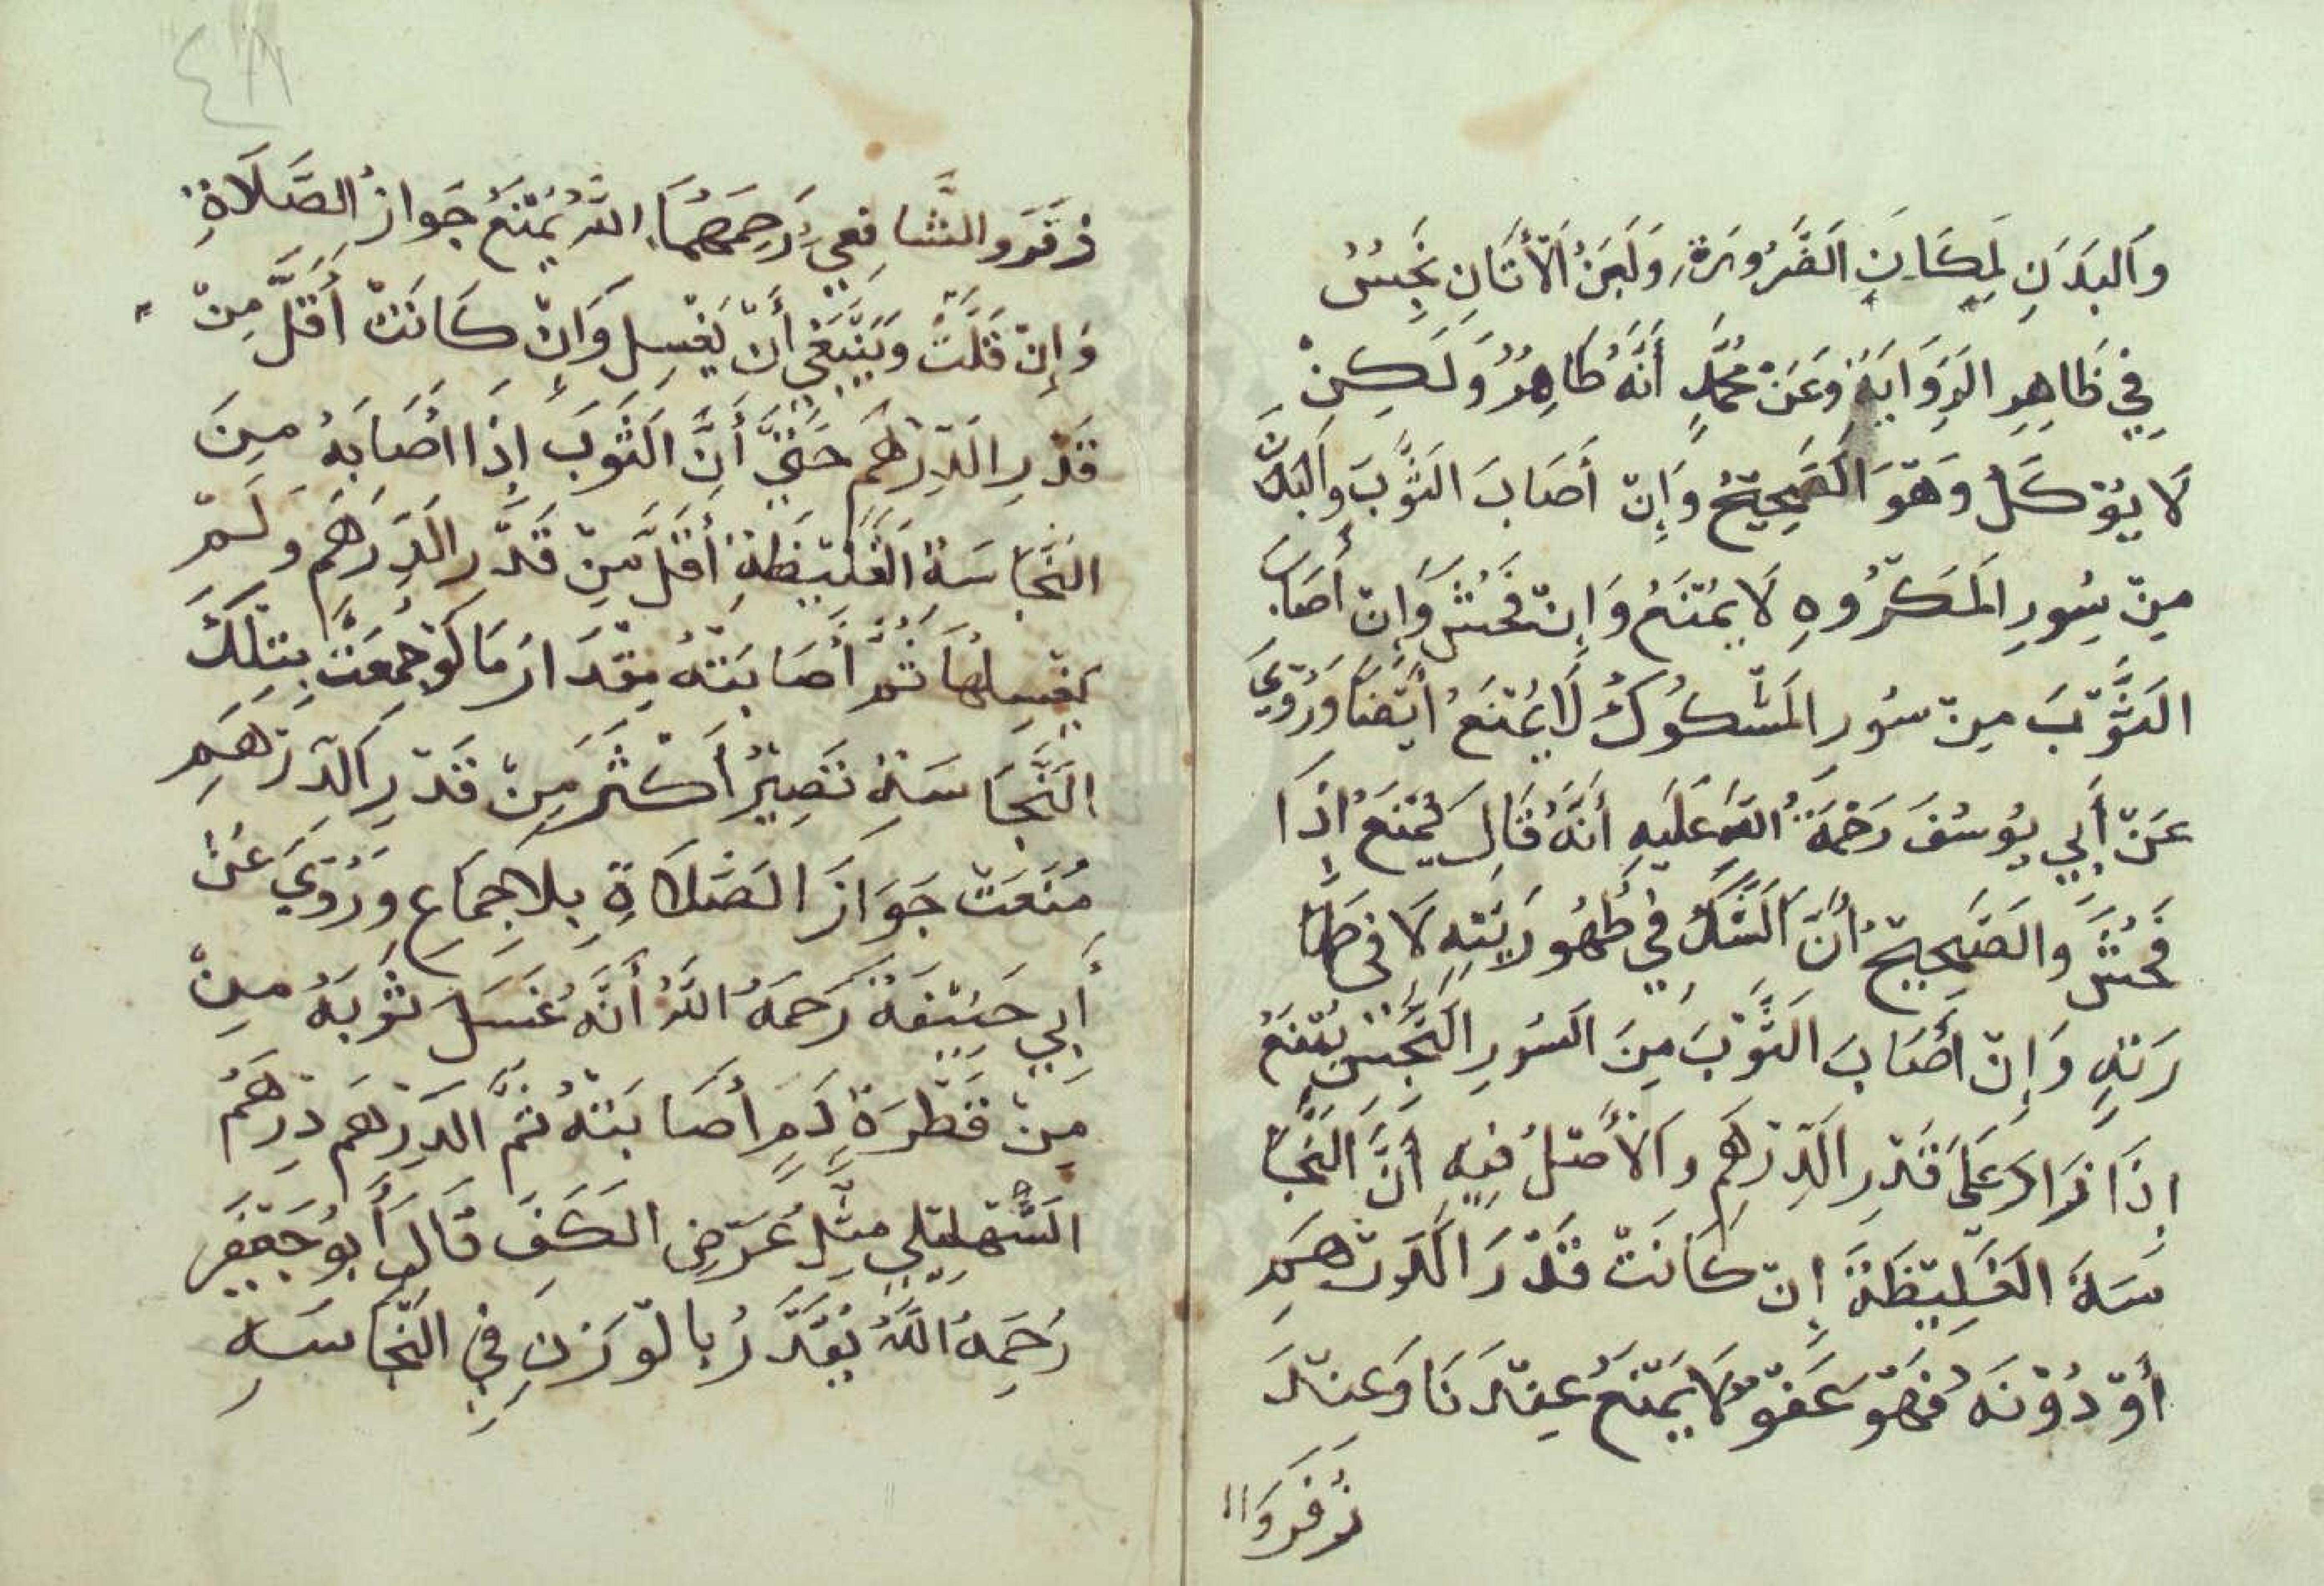 وَالبَدَنِ لِمَكَانِ الضَّرُورَةِ وَلَبَنُ الْأَتَانِ نَجِسٌ
فِيْ ظَاهِرِ الرِّوَايَةِ وَعَنْ مُحَمَّدٍ أَنَّهُ طَاهِرٌ وَلَكِنْ
لَا يُوْكَلُ وَهْوَ الصَّحِيْحُ وَإِنْ أَصَابَ الثَّوْبَ وَالبَدَنَ
مِنْ سُورِ المَكْرُوهِ لَا يُمْنَعُ وَإِنْ فَحُشَ وَإِنْ أَصَابَ
الثَّوْبَ مِنْ سُورِ المَشْكُوكِ لَا يُمْنَعُ أَيْضًا وَرُوِيَ
عَنْ أَبِي يُوسُفَ رَحْمَةُ اللهِ عَلَيهِ أَنَّهُ قَالَ يُمْنَعُ إِذَا
فَحُشَ وَالصَّحِيْحُ أَنَّ الشَّكَّ فِي طُهُورِيَّتِهِ لَا فى طَهَا
رَتِهِ وَإِنْ أَصَابَ الثَّوْبَ مِنَ السُورِ النَّجِسِ يُمْنَعُ
إِذَا زَادَ عَلَى قَدْرِ الدِّرْهَمِ وَالْأَصْلُ فِيهِ أَنَّ النَّجَا
سَةَ الغَلِيْظَةَ إِنْ كَانَتْ قَدْرَ الدِّرْهَمِ
أَوْ دُوْنَهُ فَهْوَ عَفْوٌ لَا يَمْنَعُ عِنْدَنَا وَعِنْدَ
زُفَرَ وَا
٤٨
زُفَرَ وَالشَّافِعِي رَحِمَهُمَا اللهُ يُمْنَعُ جَوَازُ الصَّلَاةِ
وَإِنْ قَلَّتْ وَيَنْبَغِي أَنْ يَغْسِلَ وَإِنْ كَانَتْ أَقَلَّ مِنْ
قَدْرِ الدِّرْهَمِ حَتَّى أَنَّ الثَّوبَ إِذَا أَصَابَهُ مِنَ
النَّجَاسَةِ الغَلِيْظَةِ أَقَلَّ مِنْ قَدْرِ الدِّرْهَمِ وَلَمْ
يَغْسِلْهَا ثُمَّ أَصَابَتْهُ مِقْدَارُ مَا لَوْ جُمِعَتْ بِتِلْكَ
النَّجَاسَةِ تَصِيْرُ أَكْثَرَ مِنْ قَدْرِ الدِّرْهَمِ
مُنَعَتْ جَوَازَ الصَّلَاةِ بِلاجمَاعِ وَرُوِيَ عَنْ
أَبِي حَنِيْفَةَ رَحِمَهُ اللهُ أَنَّهُ غَسَلَ ثَوبَهُ مِنْ
مِنْ قَطْرَةِ دَمٍ أَصَابَتْهُ ثُمَّ الدِّرْهَمُ دِرْهَمُ
الشَّهْلِيْلِي مِثْلِ عَرْضِ الكَفِّ قَالَ أَبُو جَعْفَرَ
رَحِمَهُ اللهُ يُقَدَّرُ بِالْوَزْنِ فِي النَّجَاسَةِ